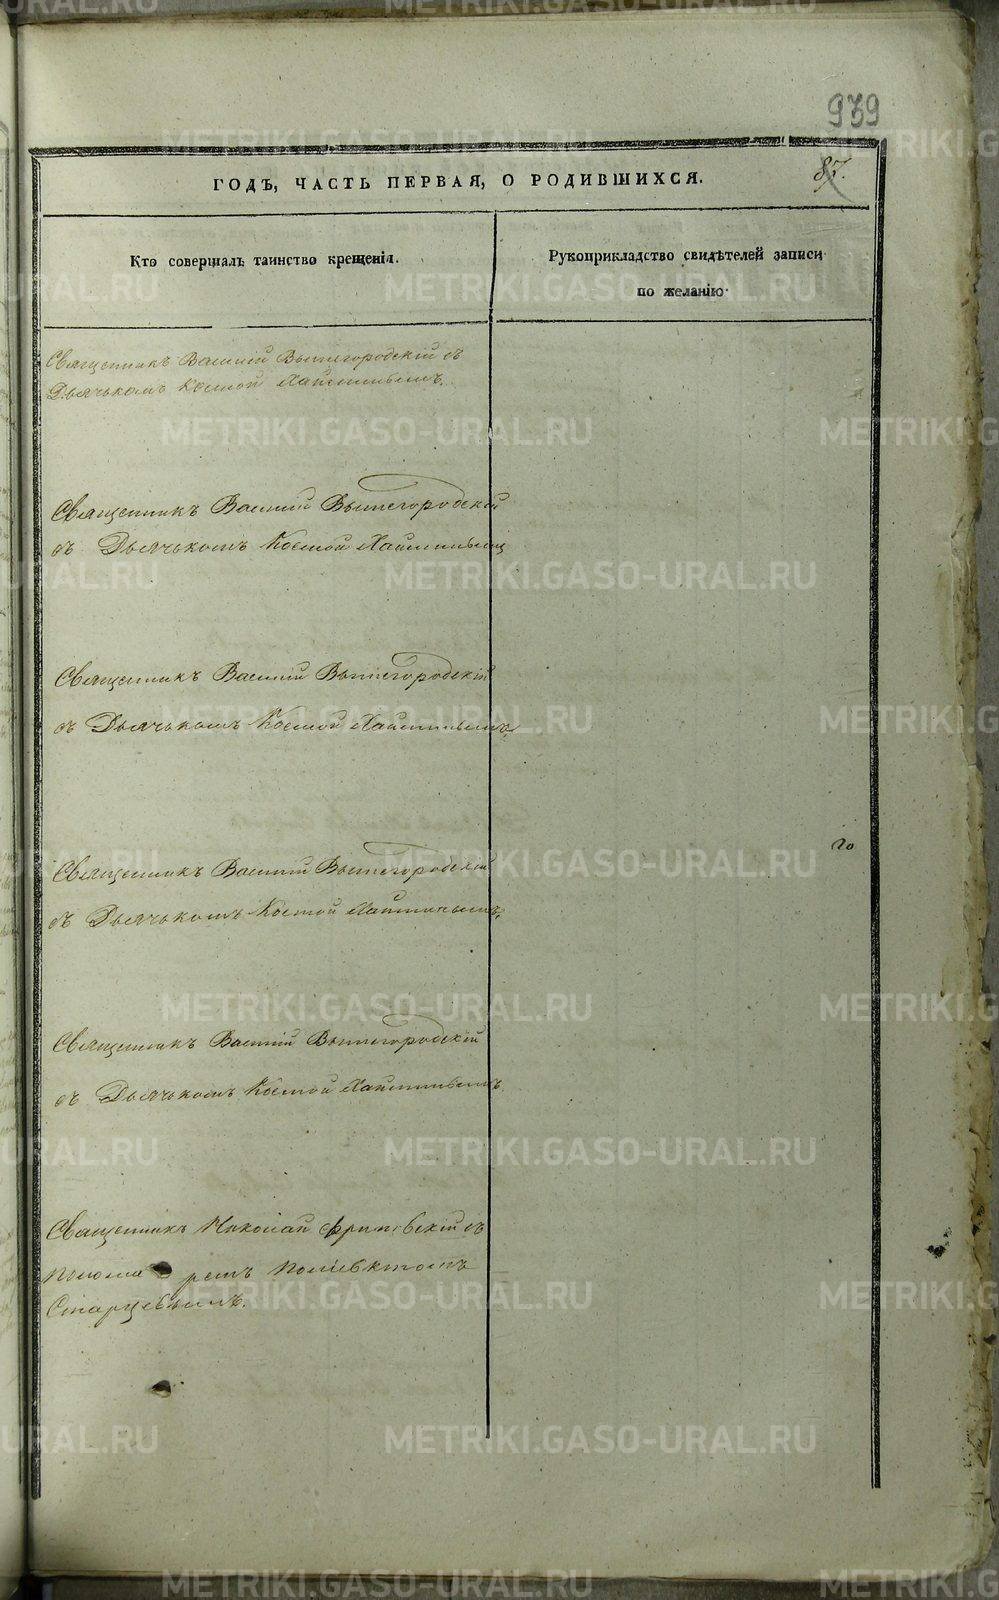 979
87.
ГОДЪ, ЧАСТЬ ПЕРВАЯ, О РОДИВШИХСЯ.
Кто совершалъ таинство крещенія.
Рукоприкладство свидѣтелей записи
по желанію
Священникъ Василій Вышегородскій съ
Дьячькомъ Космой
Священникъ Василій Вышегородскій
съ Дьячькомъ Космой
Священникъ Василій Вышегородскій
съ Дьячькомъ Космой
Священникъ Василій Вышегородскій
съ Дьячькомъ Космой
Священникъ Василій Вышегородскій
съ Дьячькомъ Космой
Священникъ Николай съ
Поліевктомъ
Старцевымъ.
METRIKI.GASO-URAL.RU